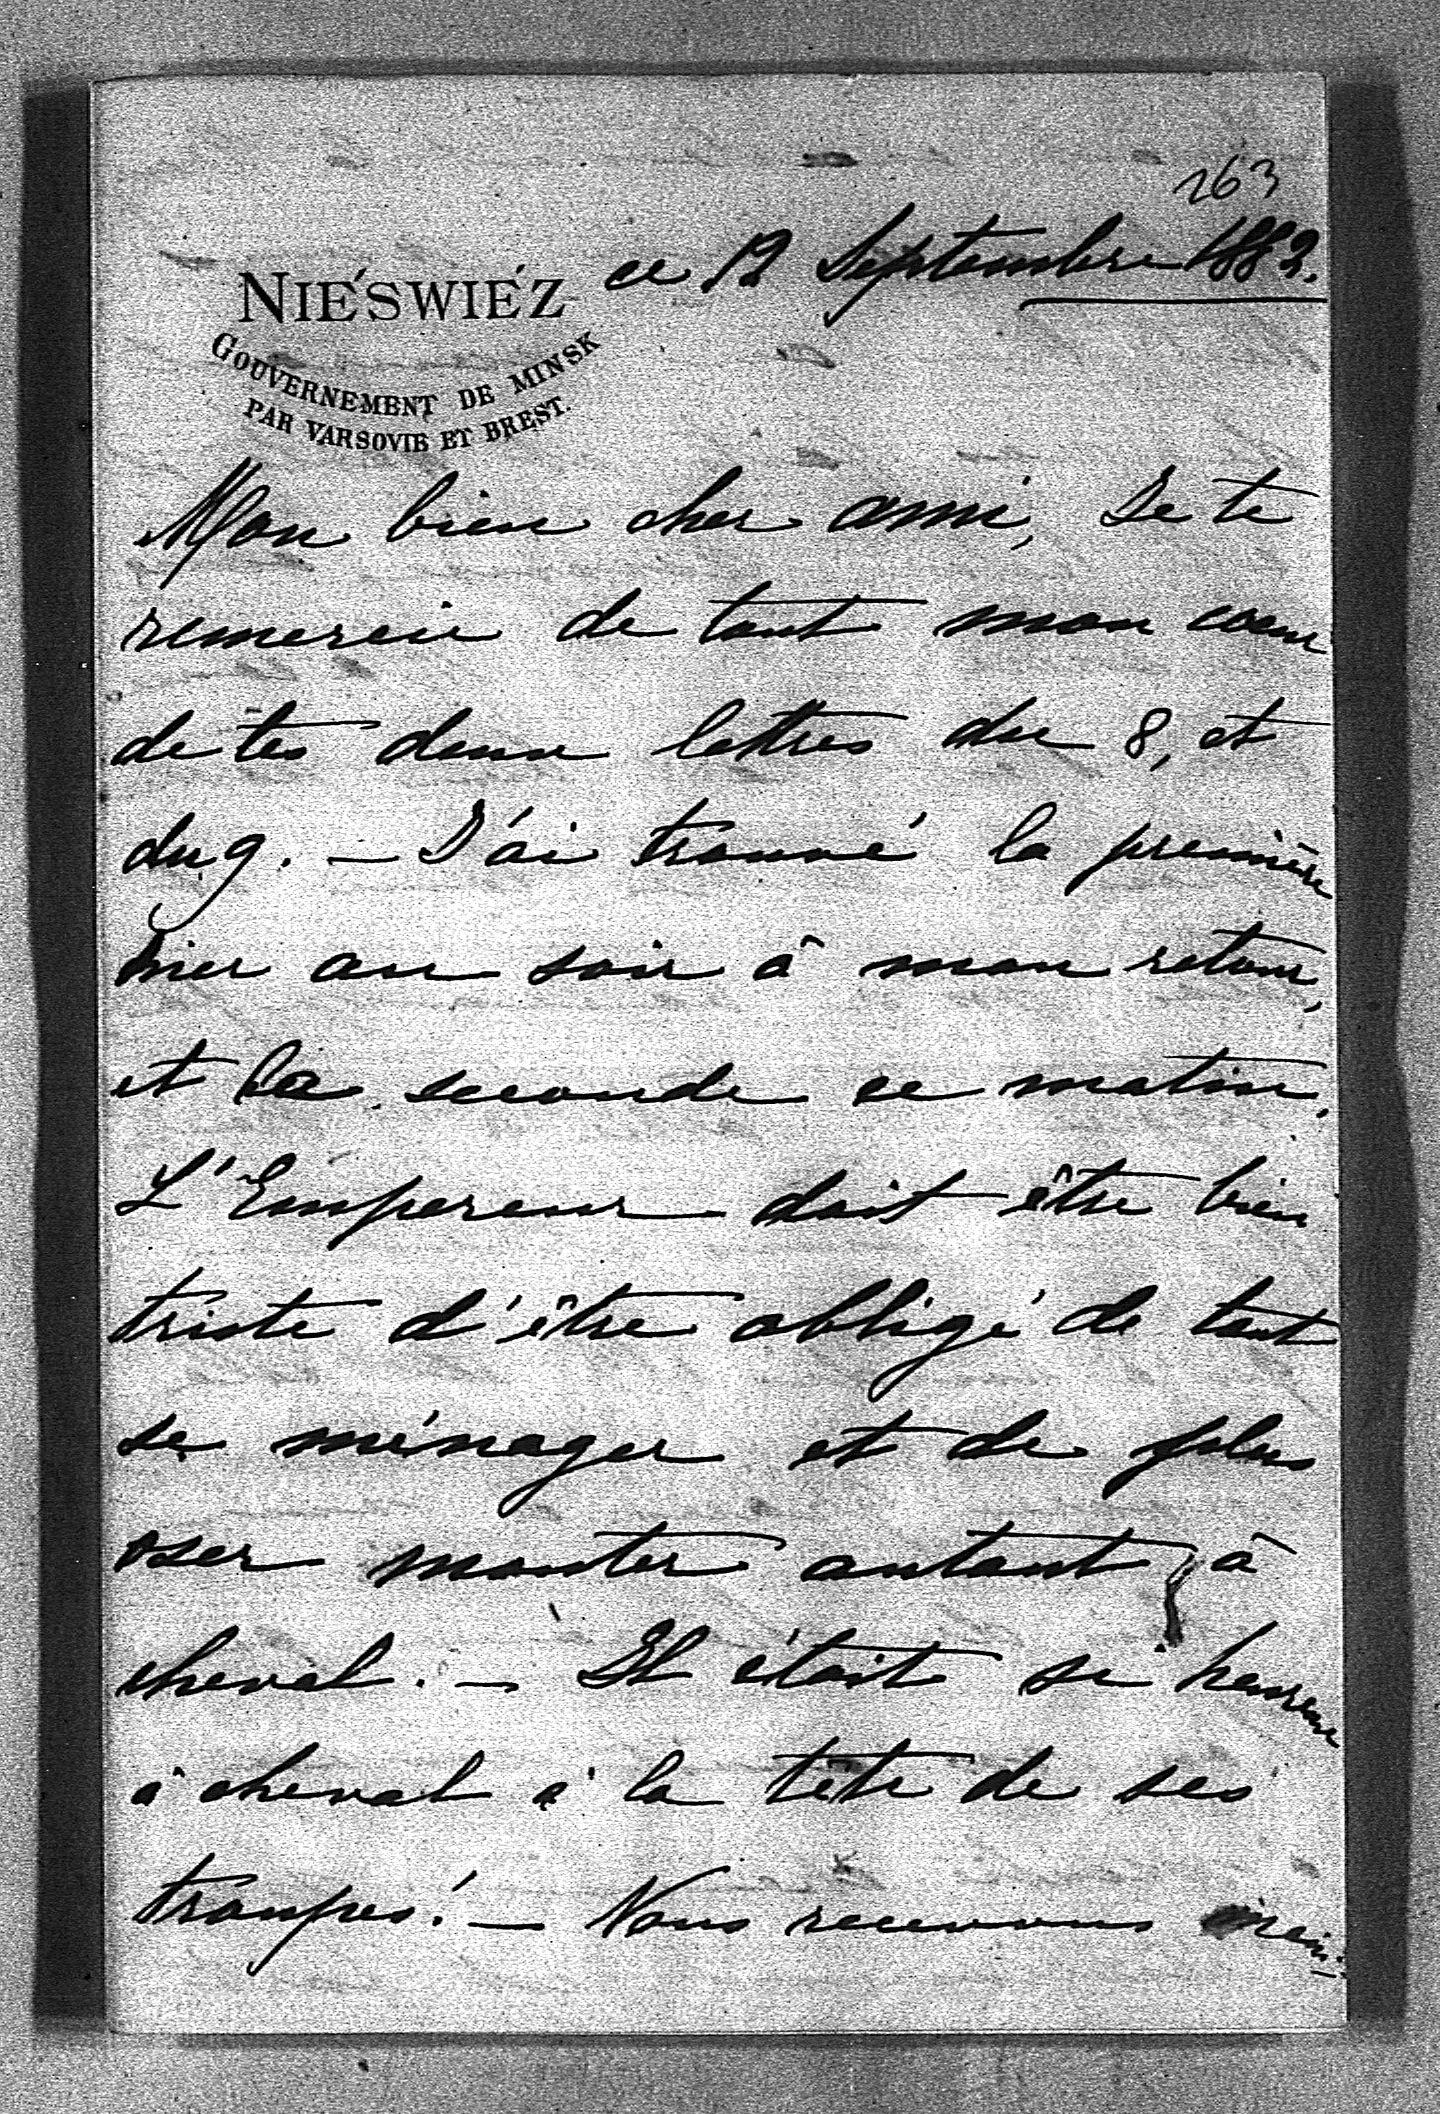 263
ce 12 Septembre 1883.
NIÉŚWIÉŹ
GOUVERNEMENT DE MINSK
PAR VARSOVIE ET BREST.
Mon bien cher ami, Je te
remercie de tout mon coeur
de tes deux lettres du 8, et
du 9. — J'ai trouvé la première
hier au soir à mon retour,
et la seconde ce matin.
L'Empereur doit être bien
triste d'être obligé de tant
se ménager et de plus
oser monter autant à
cheval. — Il était si heureux
à cheval à la tête de ses
troupes! — Nous recevons